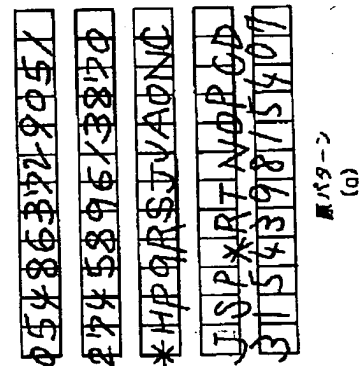 054863729051
274589613870
*HP9RSJVAONC
JSP*RTNDPCD
315439815407
原パターン
(a)